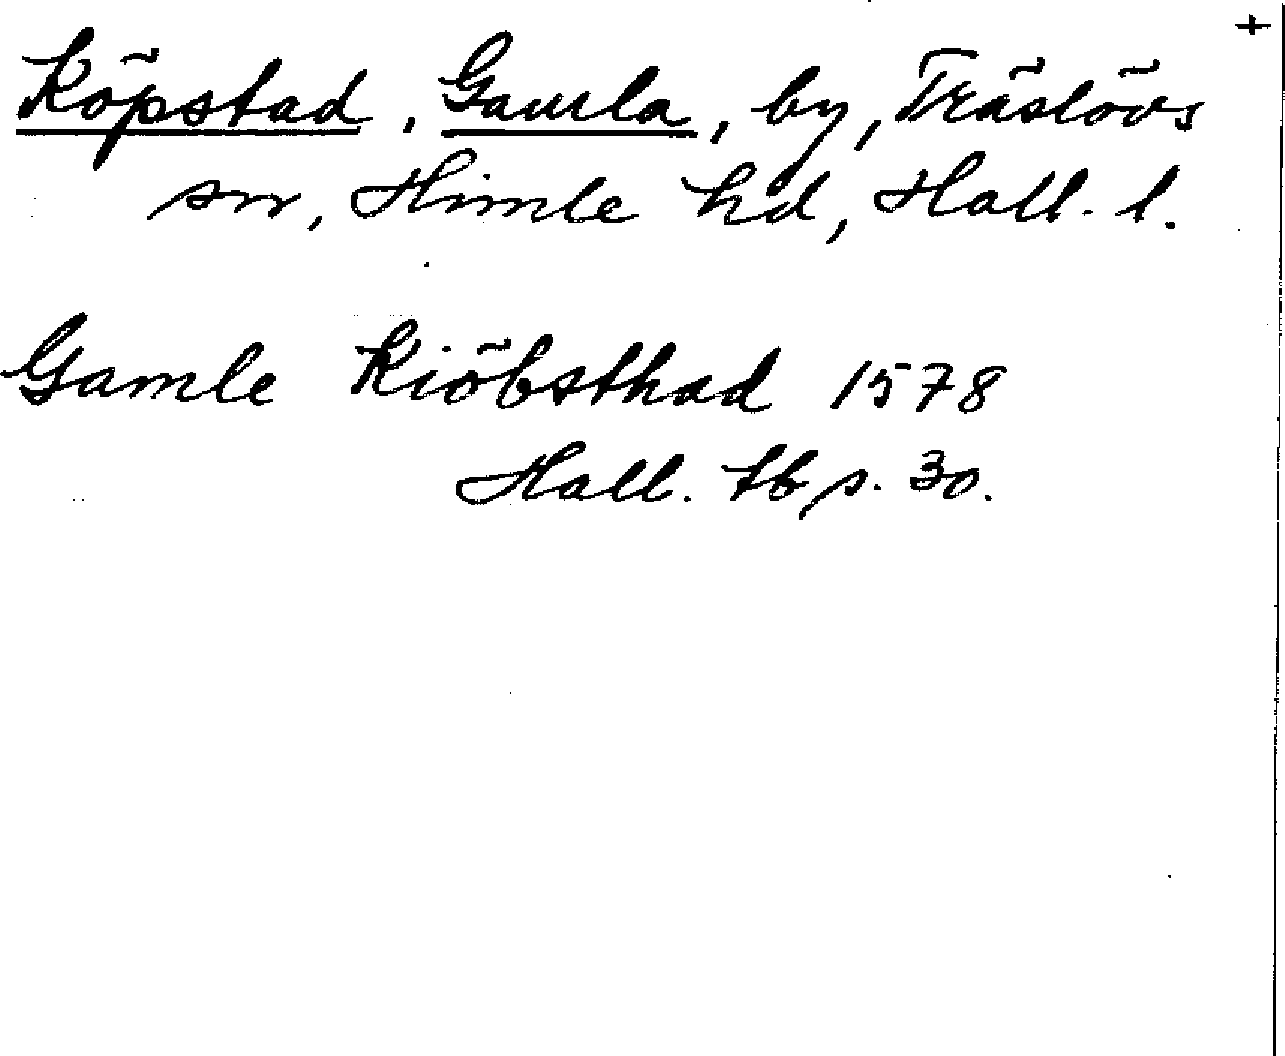 +
Köpstad, Gamla, by, Träslövs
sn, Himle hd, Hall. l.
Gamle Kiöbsthad 1578
Hall. tb s. 30.